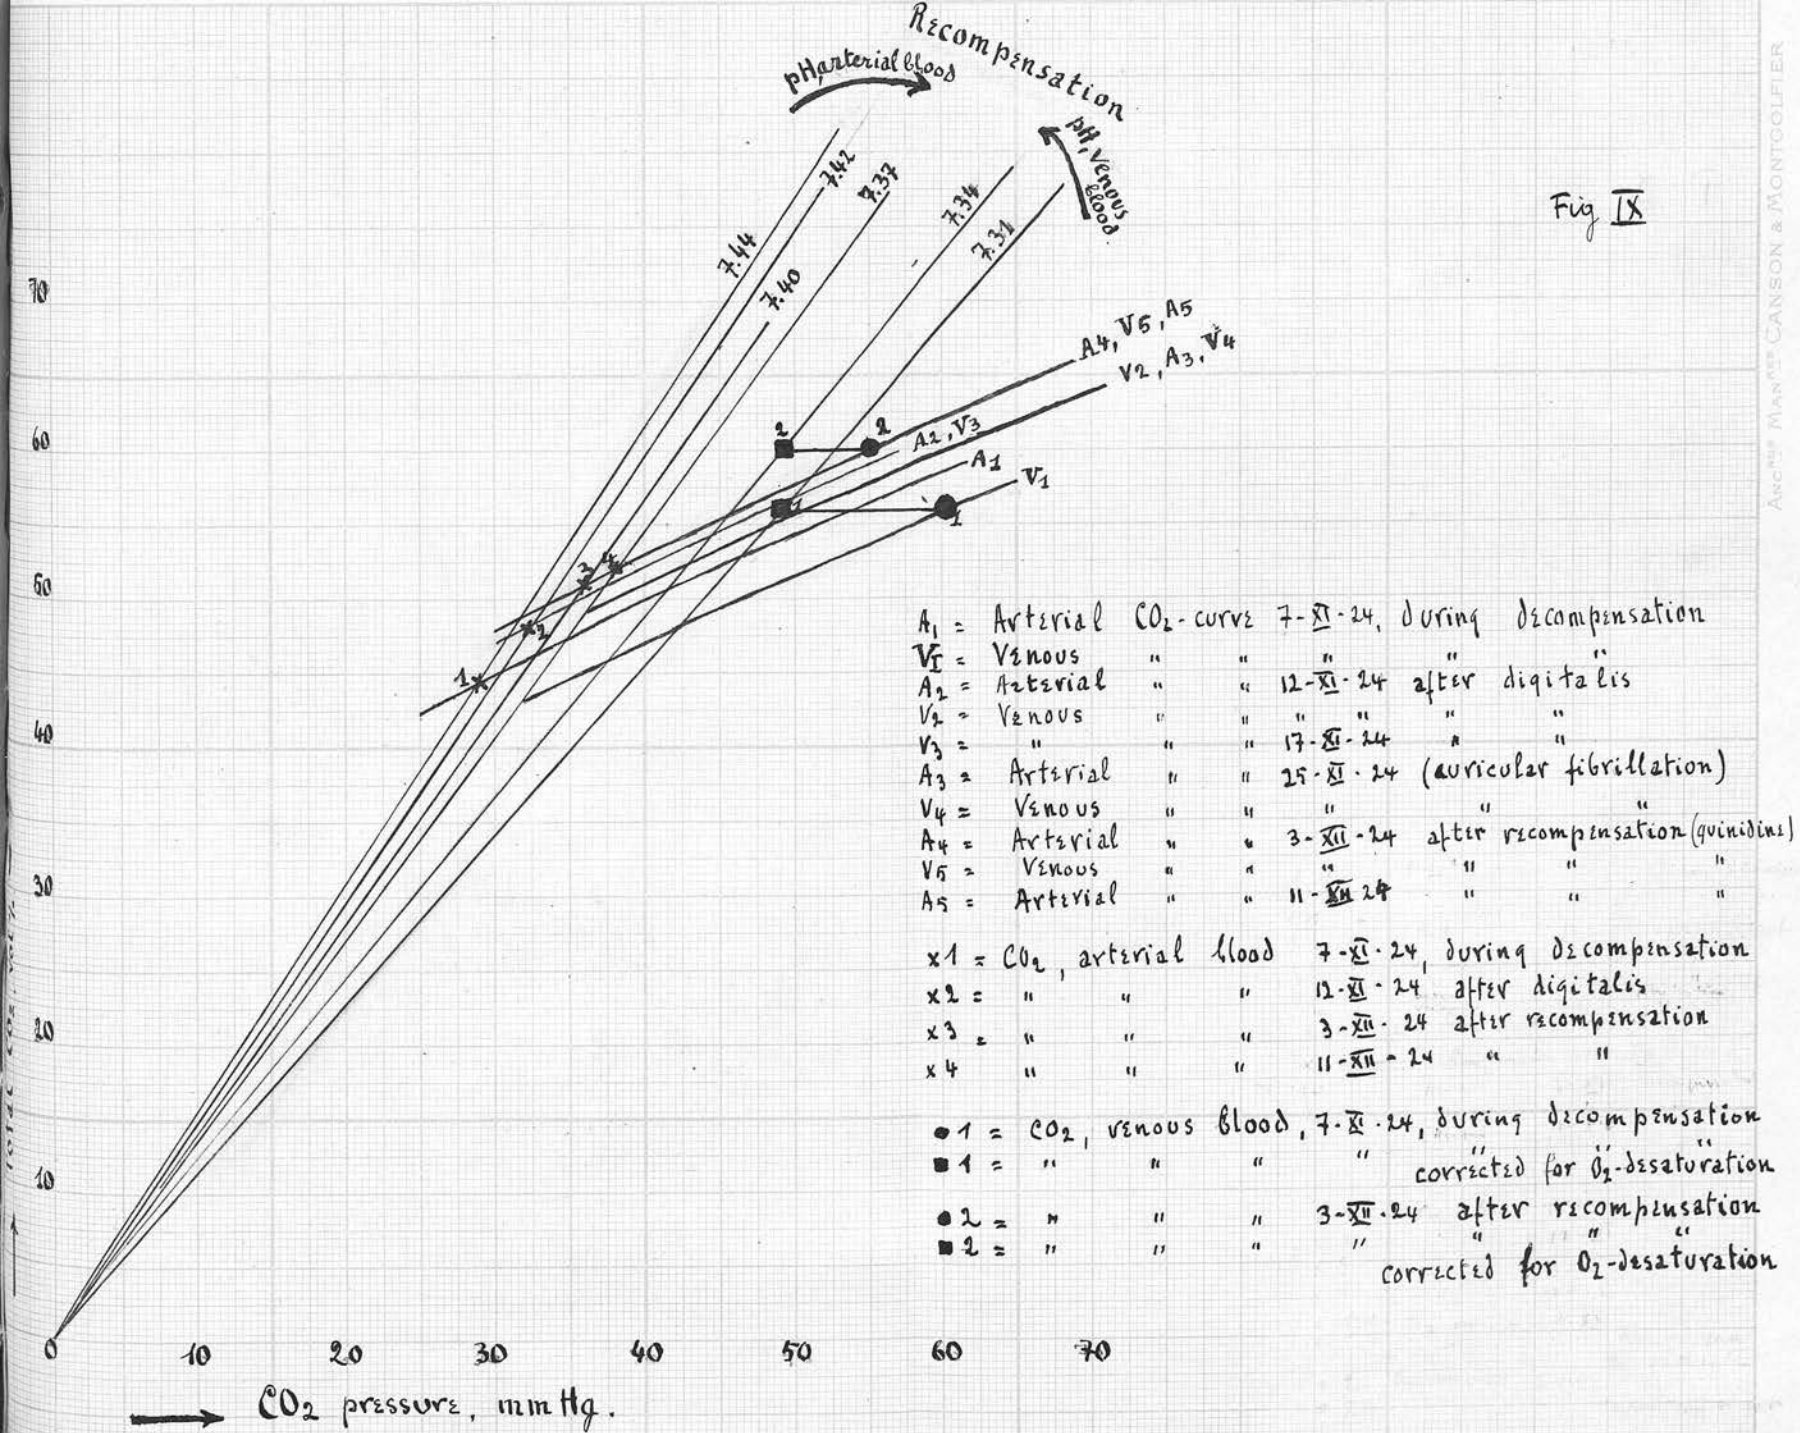 Recompensation
pH, arterial blood
pH, venous
blood.
Fig IX
7.42
7.37
7.34
7.31
7.44
7.40
70
A4, V5, A5
V2, A3, V4
60
2
2
A2, V3
A1
V1
1
1
50
3
4
2
1
40
30
20
10
0
10
20
30
40
50
60
70
Total CO2, vol %
CO2 pressure, mm Hg.
A1 = Arterial CO2-curve 7-XI-24, during decompensation
VI = Venous " " " " "
A2 = Arterial " " 12-XI-24 after digitalis
V2 = Venous " " " " " "
V3 = " " " 17-XI-24 " "
A3 = Arterial " " 25-XI-24 (auricular fibrillation)
V4 = Venous " " " " "
A4 = Arterial " " 3-XII-24 after recompensation (quinidine)
V5 = Venous " " " " " "
A5 = Arterial " " 11-XII 24 " " "
x1 = CO2, arterial blood 7-XI-24, during decompensation
x2 = " " " 12-XI-24 after digitalis
x3 = " " " 3-XII-24 after recompensation
x4 " " " 11-XII-24 " "
● 1 = CO2, venous blood, 7-XI-24, during decompensation
■ 1 = " " " " " " "
corrected for O2-desaturation
● 2 = " " " 3-XII-24 after recompensation
■ 2 = " " " " " " "
corrected for O2-desaturation
CANSON & MONTGOLFIER